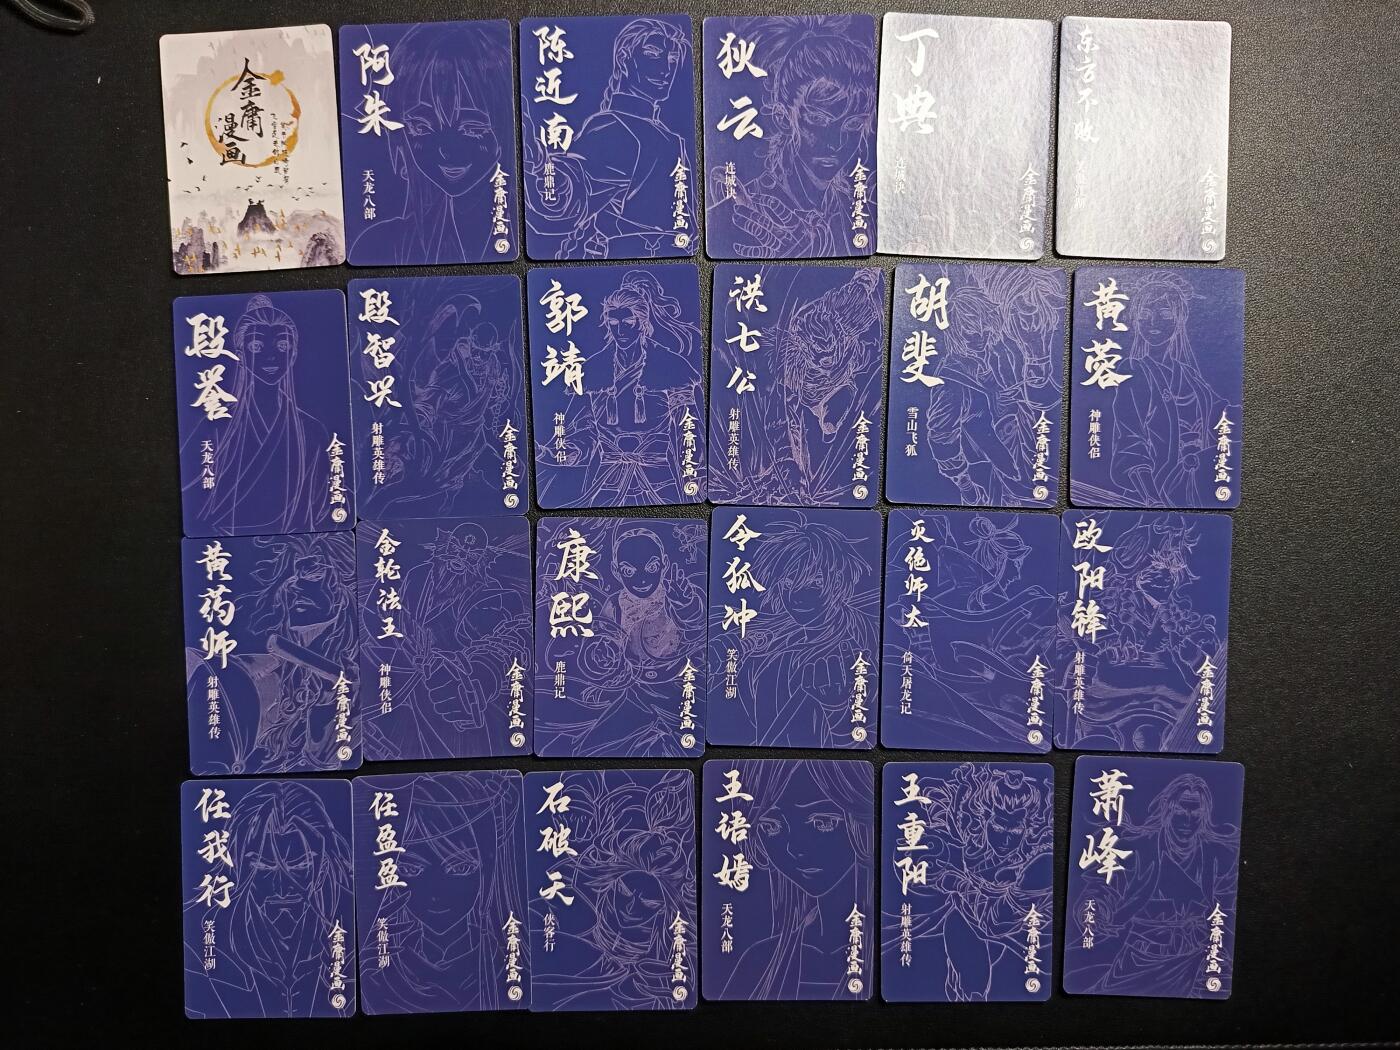 金庸
漫画
阿朱
天龙八部
金庸漫画
陈近南
鹿鼎记
金庸漫画
狄云
连城诀
金庸漫画
丁典
连城诀
金庸漫画
东方不败
笑傲江湖
金庸漫画
段誉
天龙八部
金庸漫画
段智兴
射雕英雄传
金庸漫画
郭靖
神雕侠侣
金庸漫画
洪七公
射雕英雄传
金庸漫画
胡斐
雪山飞狐
金庸漫画
黄蓉
神雕侠侣
金庸漫画
黄药师
射雕英雄传
金庸漫画
金轮法王
神雕侠侣
金庸漫画
康熙
鹿鼎记
金庸漫画
令狐冲
笑傲江湖
金庸漫画
灭绝师太
倚天屠龙记
金庸漫画
欧阳锋
射雕英雄传
金庸漫画
任我行
笑傲江湖
金庸漫画
任盈盈
笑傲江湖
金庸漫画
石破天
侠客行
金庸漫画
王语嫣
天龙八部
金庸漫画
王重阳
射雕英雄传
金庸漫画
萧峰
天龙八部
金庸漫画